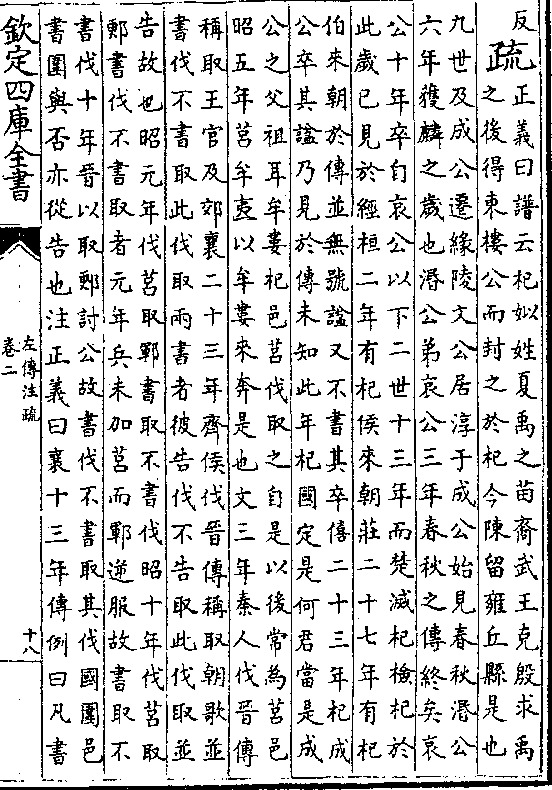 反疏正義曰譜云杞姒姓夏禹之苗裔武王克殷求禹
之後得東樓公而封之於杞今陳留雍丘縣是也
九世及成公遷緣陵文公居淳于成公始見春秋湣公
六年獲麟之歲也湣公弟哀公三年春秋之傳終矣哀
公十年卒自哀公以下二世十三年而楚滅杞檢杞於
此歲已見於經桓二年有杞侯來朝莊二十七年有杞
伯來朝於傳並無號諡又不書其卒僖二十三年杞成
公卒其諡乃見於傳未知此年杞國定是何君當是成
公之父祖耳牟婁杞邑莒伐取之自是以後常為莒邑
昭五年莒牟夷以牟婁來奔是也文三年秦人伐晉傳
稱取王官及郊襄二十三年齊侯伐晉傳稱取朝歌並
書伐不書取此伐取兩書者彼告伐不告取此伐取並
告故也昭元年伐莒取鄆書取不書伐昭十年伐莒取
郠書伐不書取者元年兵未加莒而鄆逆服故書取不
書伐十年晉以取郠討公故書伐不書取其伐國圍邑
書圍與否亦從告也注正義曰襄十三年傳例曰凡書
欽定四庫全書
左傳注疏
卷二
十八